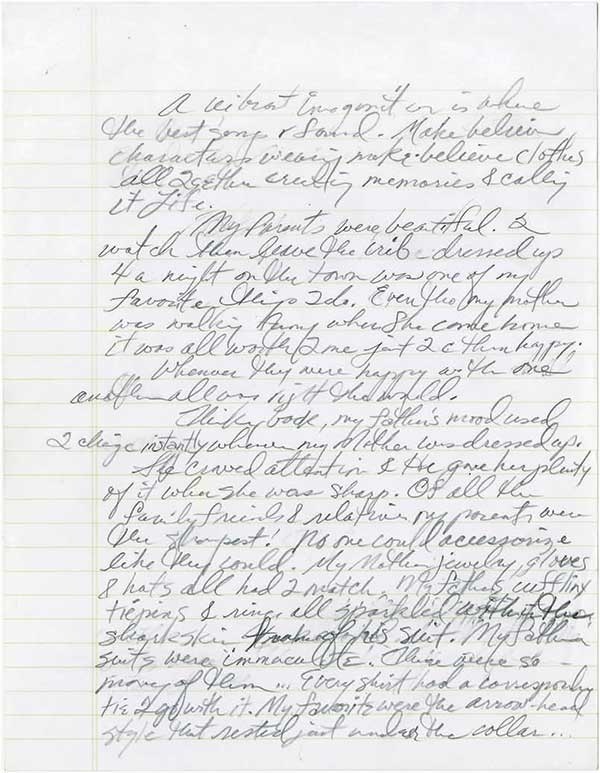 A vibrant Imaginat'n is where
the best songs r found. Make believe
characters wearing make-believe clothes
all 2gether creating memories & calling
it Life.
My Parents were beautiful. 2
watch them leave the crib dressed up
4 a night on the town was one of my
favorite things 2 do. Even tho my mother
was walking funny when she come home
it was all worth 2 me just 2 c them happy.
Whenever they were happy with one
another all was right the world.
Thinking back, my father's mood used
2 change instantly whenever my Mother was dressed up.
She craved attention & He gave her plenty
of it when she was sharp. Of all the
family friends & relatives my parents were
the sharpest! No one could accessorize
like they could. My Mother's jewelry, gloves
& hats all had 2 match. My father's cufflinx
tiepins & rings all sparkled within the
sharkskin his suit. My father's
suits were immaculate. There were so
many of them... Every shirt had a corresponding
tie 2 go with it. My favorites were the arrow-head
style that rested just under the collar...